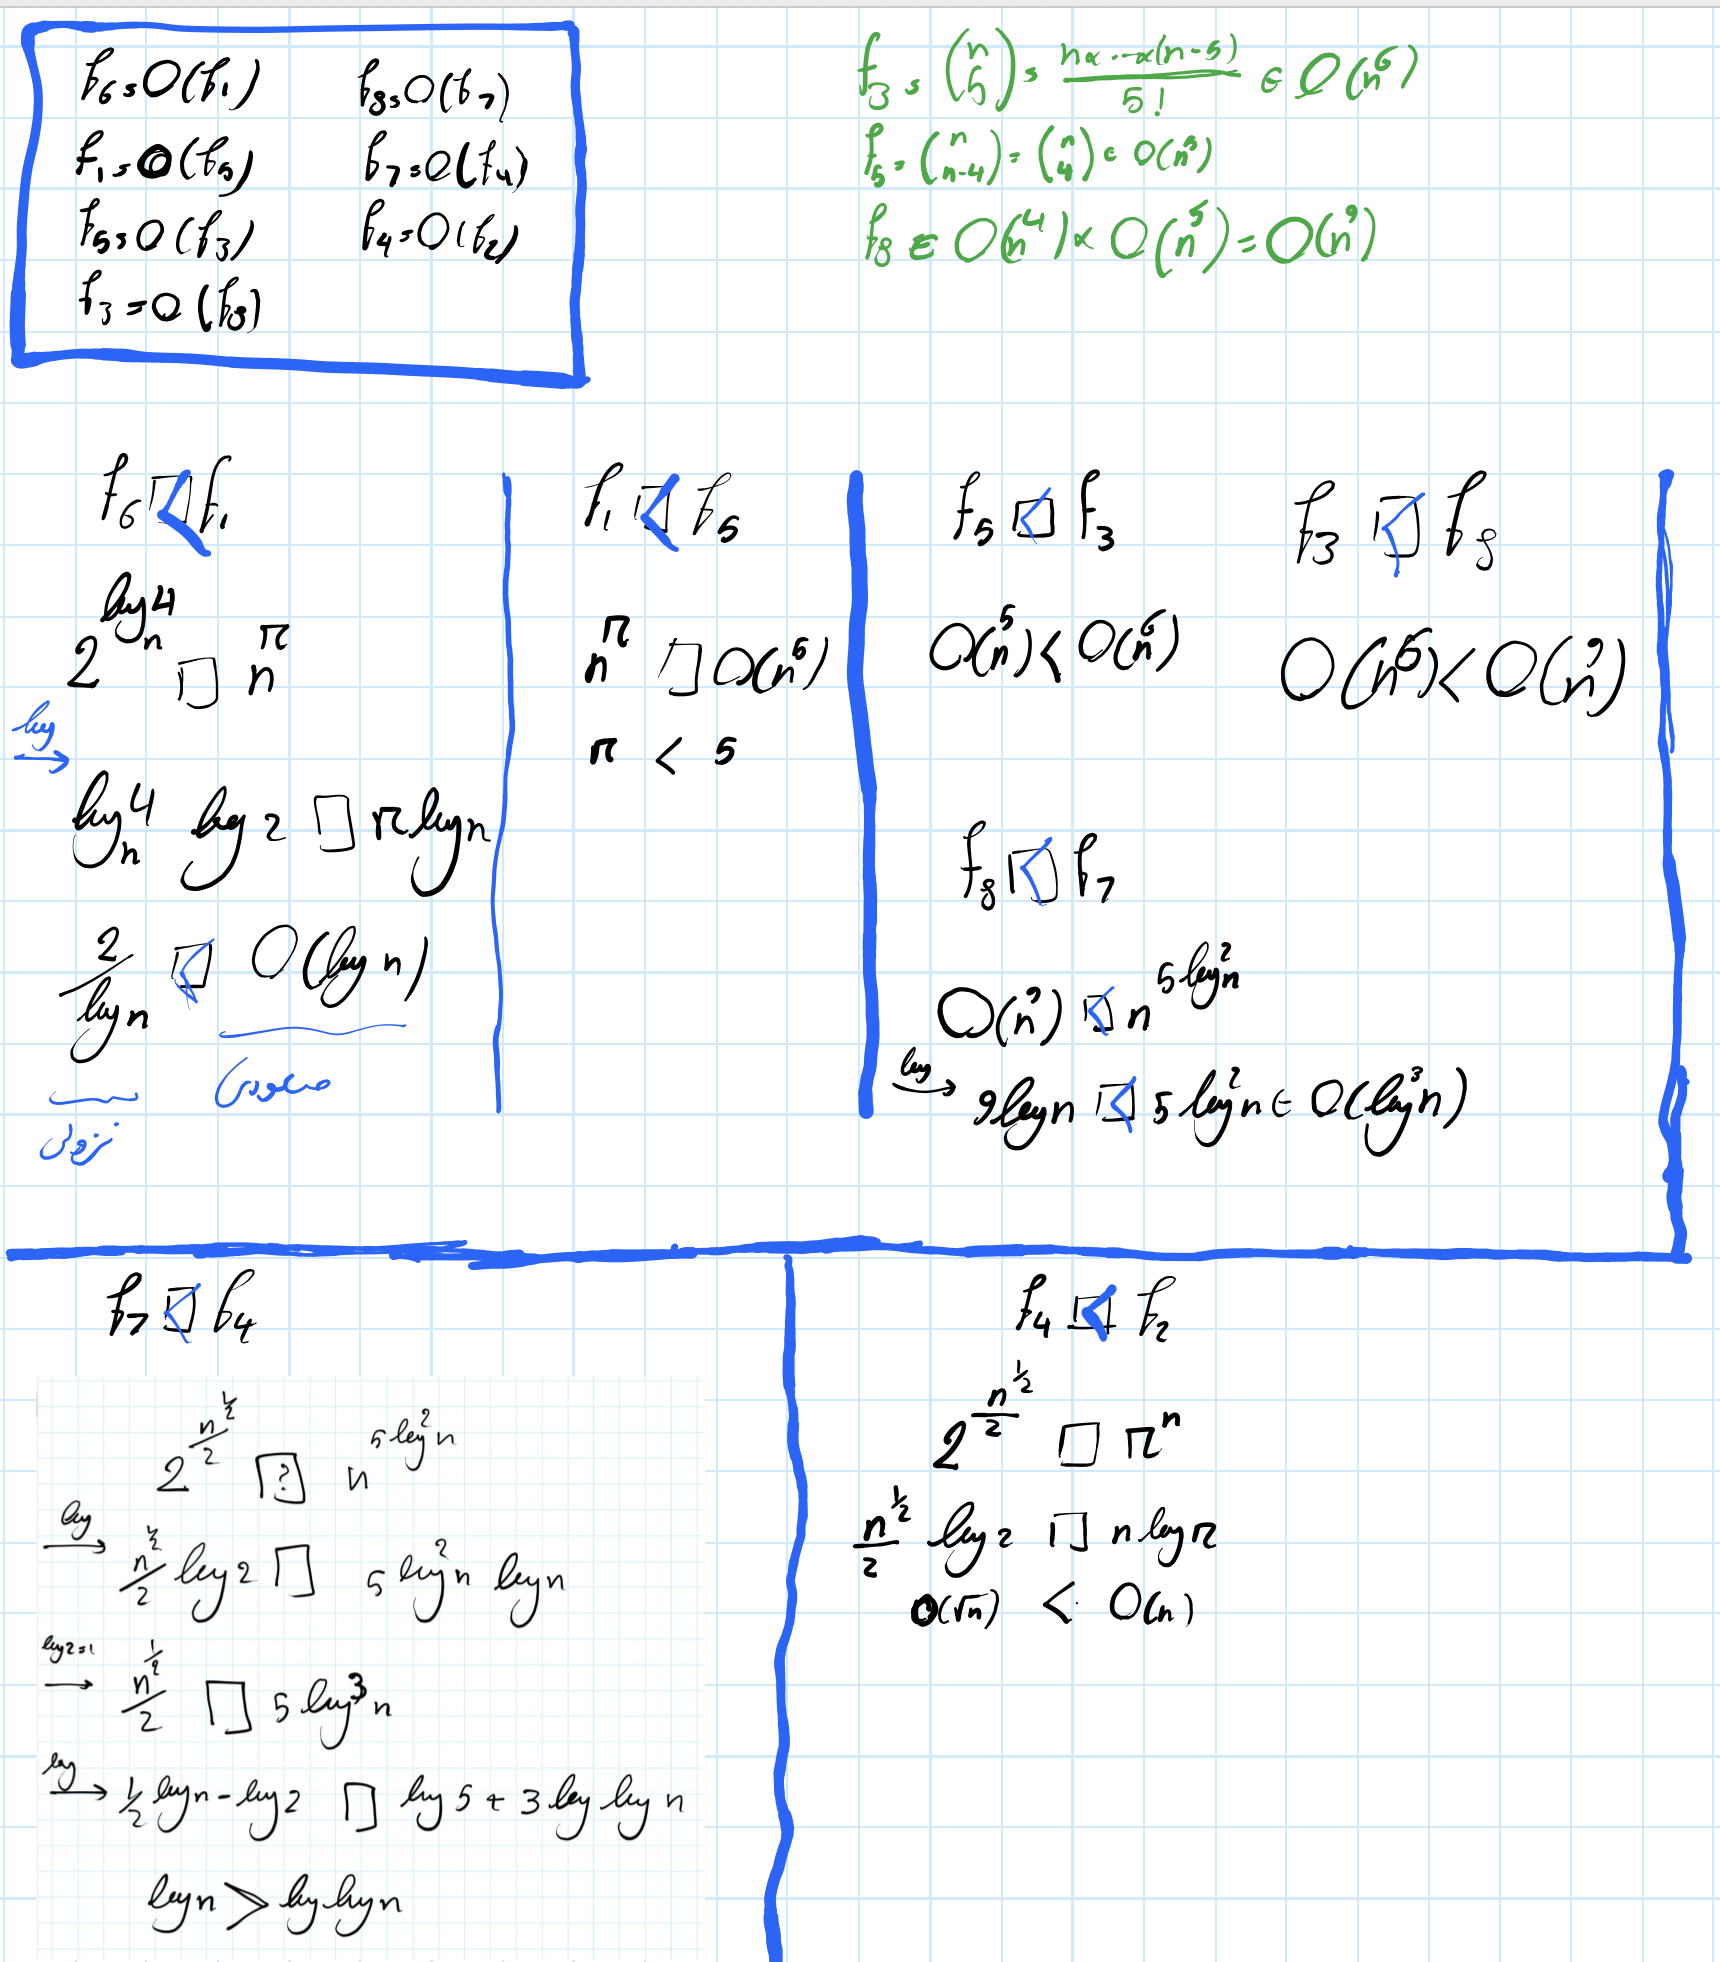 f₆ = O(f₁) f₈ = O(f₇)
f₁ = O(f₅) f₇ = O(f₄)
f₅ = O(f₃) f₄ = O(f₂)
f₃ = O(f₈)
f₃ = (n 5) = n×...×(n-5) / 5! ∈ O(n⁶)
f₅ = (n n-4) = (n 4) ∈ O(n⁵)
f₈ ∈ O(n⁴) × O(n⁵) = O(n⁹)
f₆ □ < f₁
2^(log_n 4) □ n^π
log →
log_n 4 log 2 □ π log n
2 / log n □ < O(log n)
نزولی صعودی
f₁ □ < f₅
n^π □ O(n⁵)
π < 5
f₅ □ < f₃
O(n⁵) < O(n⁶)
f₃ □ < f₈
O(n⁶) < O(n⁹)
f₈ □ < f₇
O(n⁹) □ < n^(5 log² n)
log → 9 log n □ < 5 log² n ∈ O(log³ n)
f₇ □ < f₄
2^(n^(1/2) / 2) [?] n^(5 log² n)
log → n^(1/2) / 2 log 2 □ 5 log² n log n
log 2 = 1 → n^(1/2) / 2 □ 5 log³ n
log → 1/2 log n - log 2 □ log 5 + 3 log log n
log n > log log n
f₄ □ < f₂
2^(n^(1/2) / 2) □ π^n
n^(1/2) / 2 log 2 □ n log π
O(√n) < O(n)